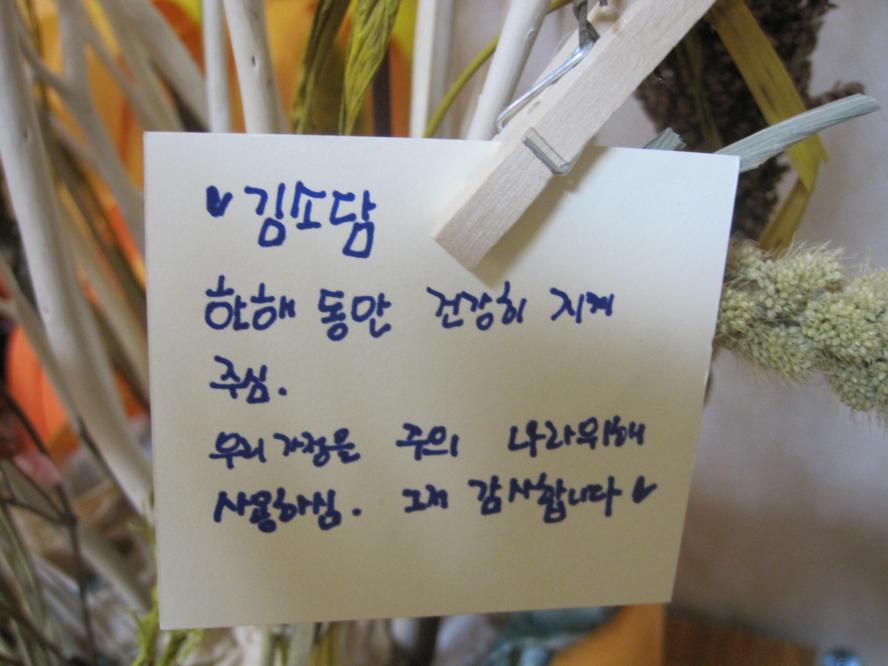 ♥김소담
한해 동안 건강히 지켜
주심.
우리가정을 주의 나라위해
사용하심. 그저 감사합니다♥